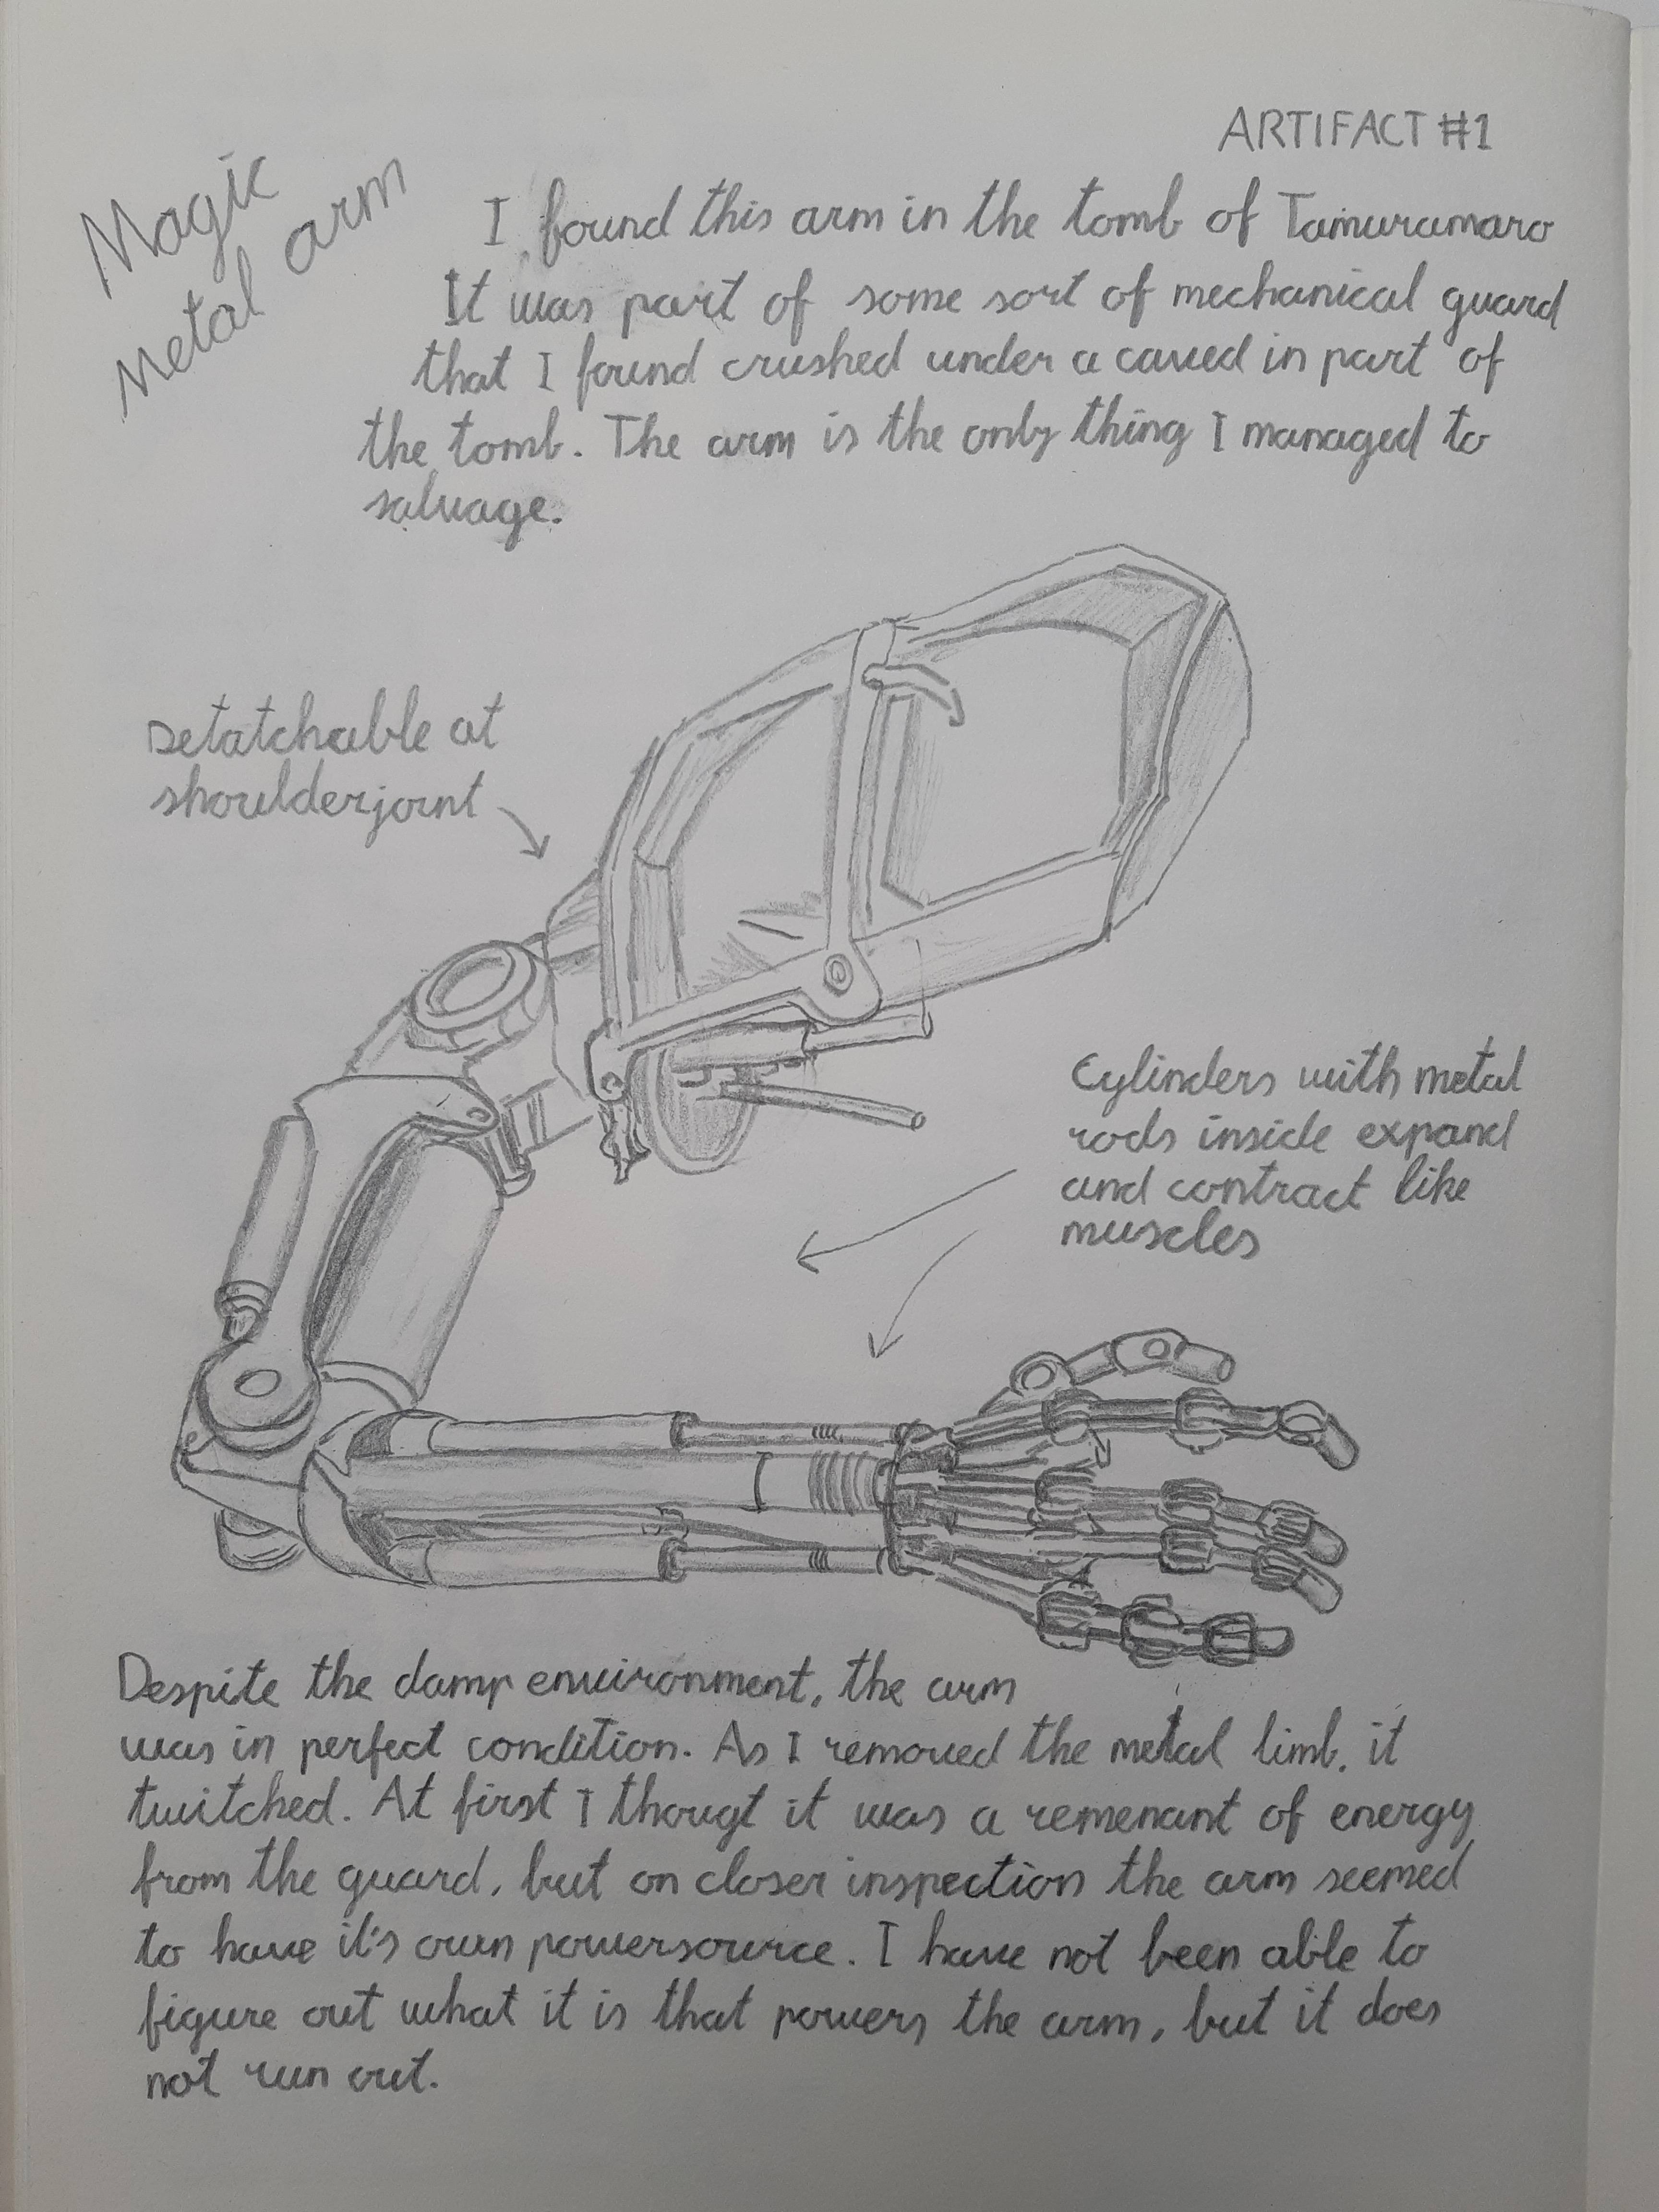 ARTIFACT #1
Magic
Metal arm
I found this arm in the tomb of Tamuramaro
It was part of some sort of mechanical guard
that I found crushed under a caved in part of
the tomb. The arm is the only thing I managed to
salvage.
Detatchable at
shoulderjoint
Cylinders with metal
rods inside expand
and contract like
muscles
Despite the damp environment, the arm
was in perfect condition. As I removed the metal limb, it
twitched. At first I thougt it was a remenant of energy
from the guard, but on closer inspection the arm seemed
to have it's own powersource. I have not been able to
figure out what it is that powers the arm, but it does
not run out.